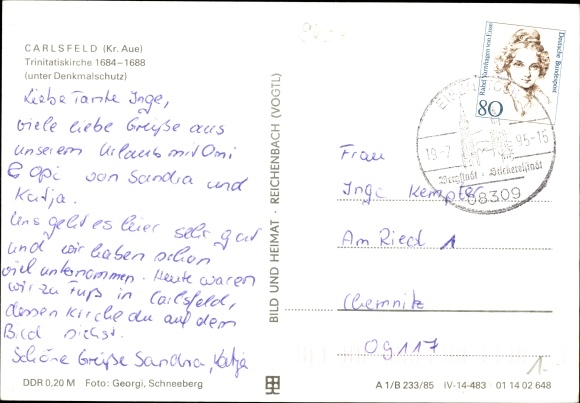 CARLSFELD (Kr. Aue)
Trinitatiskirche 1684–1688
(unter Denkmalschutz)
Liebe Tante Inge,
viele liebe Grüße aus
unserem Urlaub mit Omi
& Opi von Sandra und
Katja.
Uns geht es hier sehr gut
und wir haben schon
viel unternommen. Heute waren
wir zu Fuß in Carlsfeld,
dessen Kirche du auf dem
Bild siehst.
Schöne Grüße Sandra, Katja
DDR 0,20 M Foto: Georgi, Schneeberg
BILD UND HEIMAT · REICHENBACH (VOGTL)
Rahel Varnhagen von Ense
Deutsche Bundespost
80
95-15
Bergstadt - Stickereistadt
08309
Frau
Inge Kempter
Am Ried 1
Chemnitz
09117
1-
A 1/B 233/85 IV-14-483 01 14 02 648